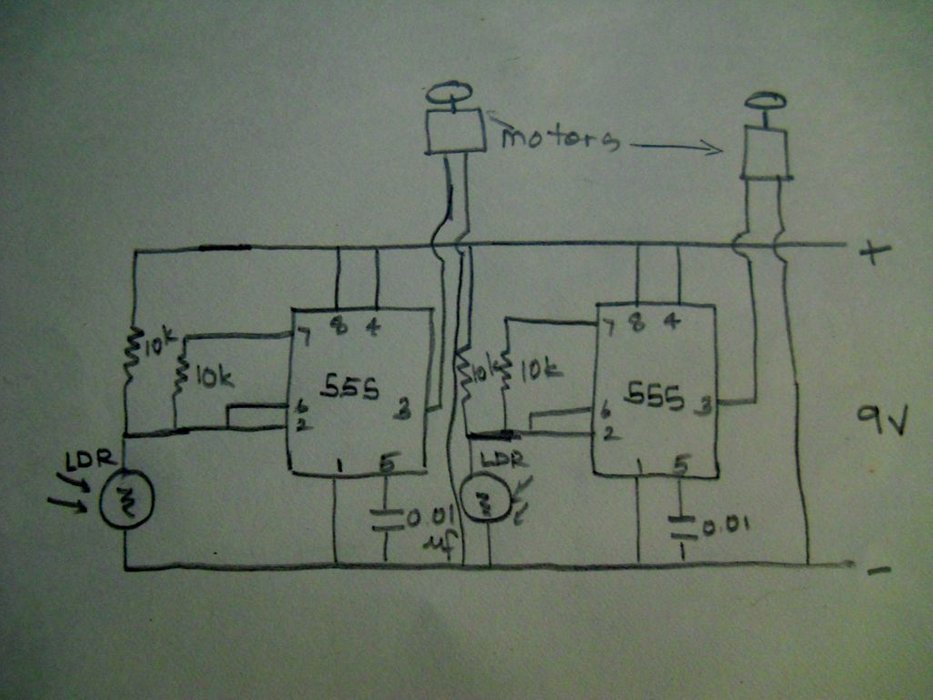 motors
+
10k
10k
7
8
4
555
6
2
3
1
5
LDR
0.01
µf
10k
10k
7
8
4
555
6
2
3
1
5
LDR
0.01
9V
-